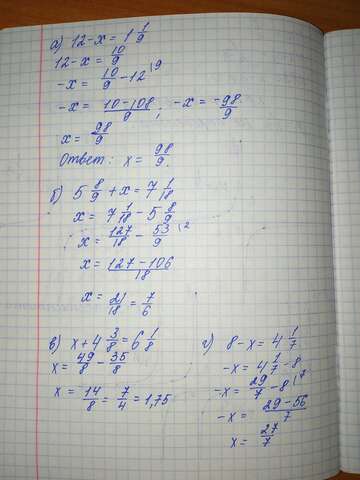 а) 12 - x = 1 1/9
12 - x = 10/9
-x = 10/9 - 12 \9
-x = (10 - 108)/9 ; -x = -98/9
x = 98/9
Ответ: x = 98/9.
б) 5 8/9 + x = 7 1/18
x = 7 1/18 - 5 8/9
x = 127/18 - 53/9 \2
x = (127 - 106)/18
x = 21/18 = 7/6
в) x + 4 3/8 = 6 1/8
x = 49/8 - 35/8
x = 14/8 = 7/4 = 1,75
г) 8 - x = 4 1/7
-x = 4 1/7 - 8
-x = 29/7 - 8 \7
-x = (29 - 56)/7
x = 27/7